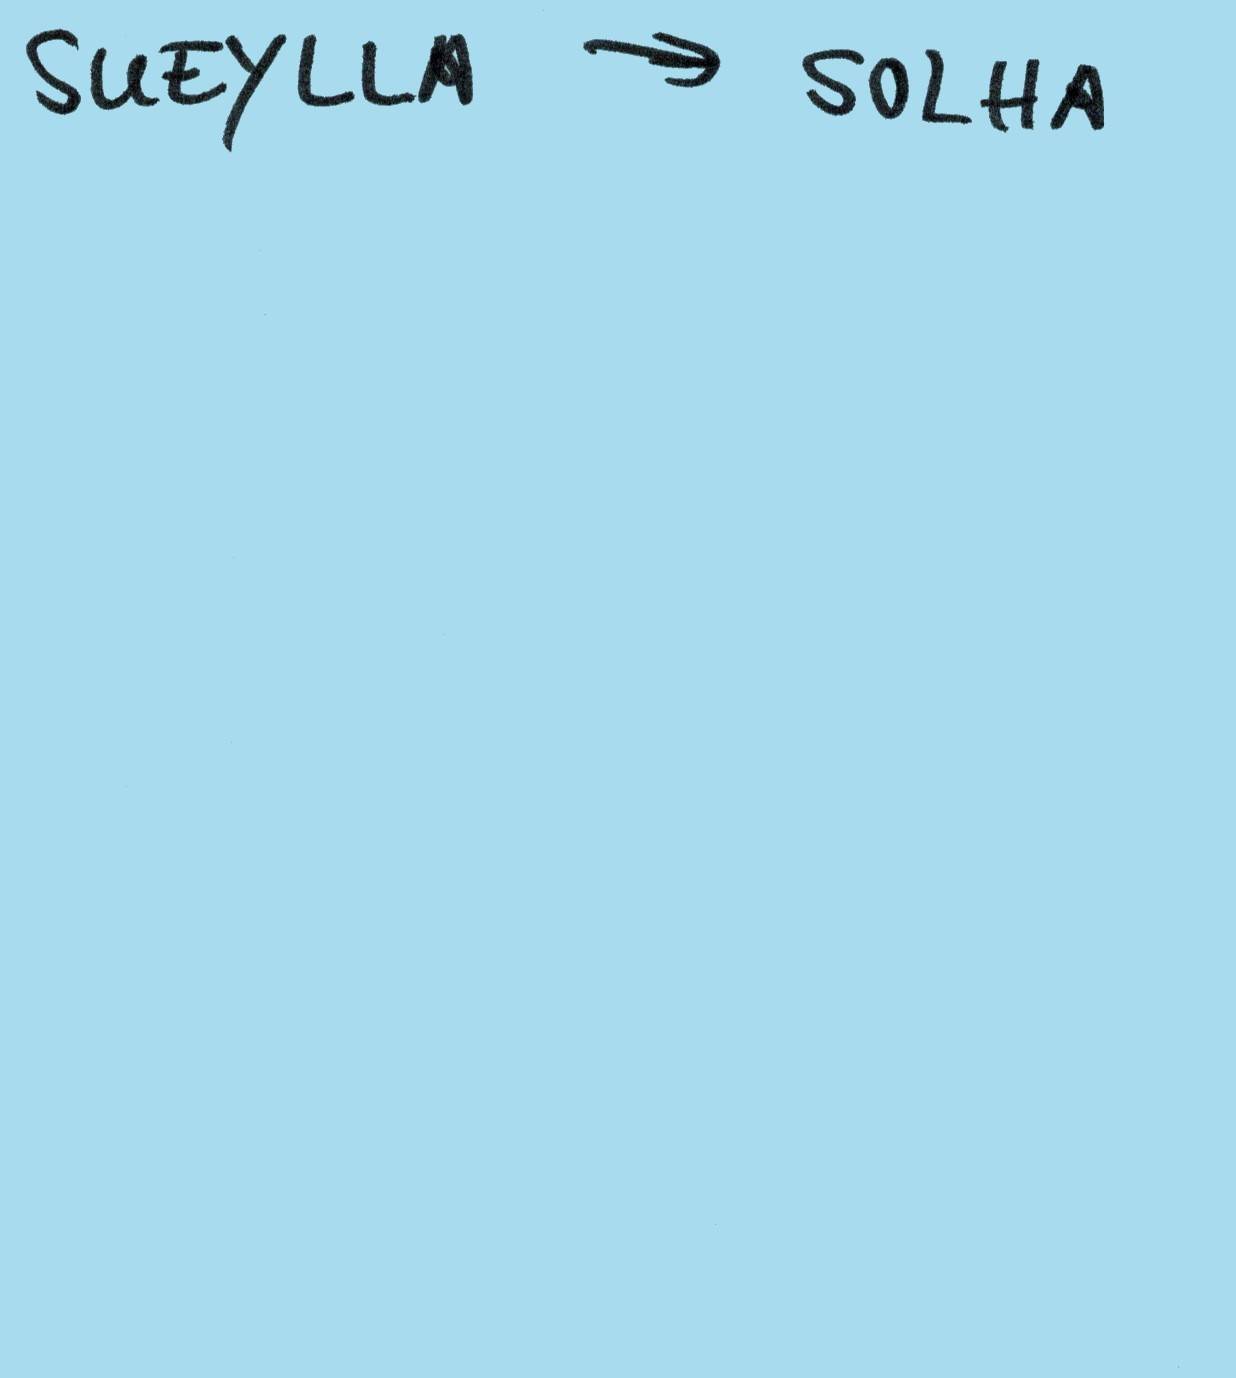 SUEYLLA → SOLHA